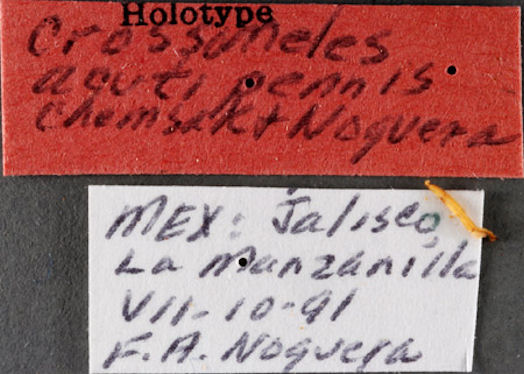 Holotype
Crossomeles
acutipennis
Chemsak & Noguera
MEX: Jalisco,
La Manzanilla
VII-10-91
F.A. Noguera